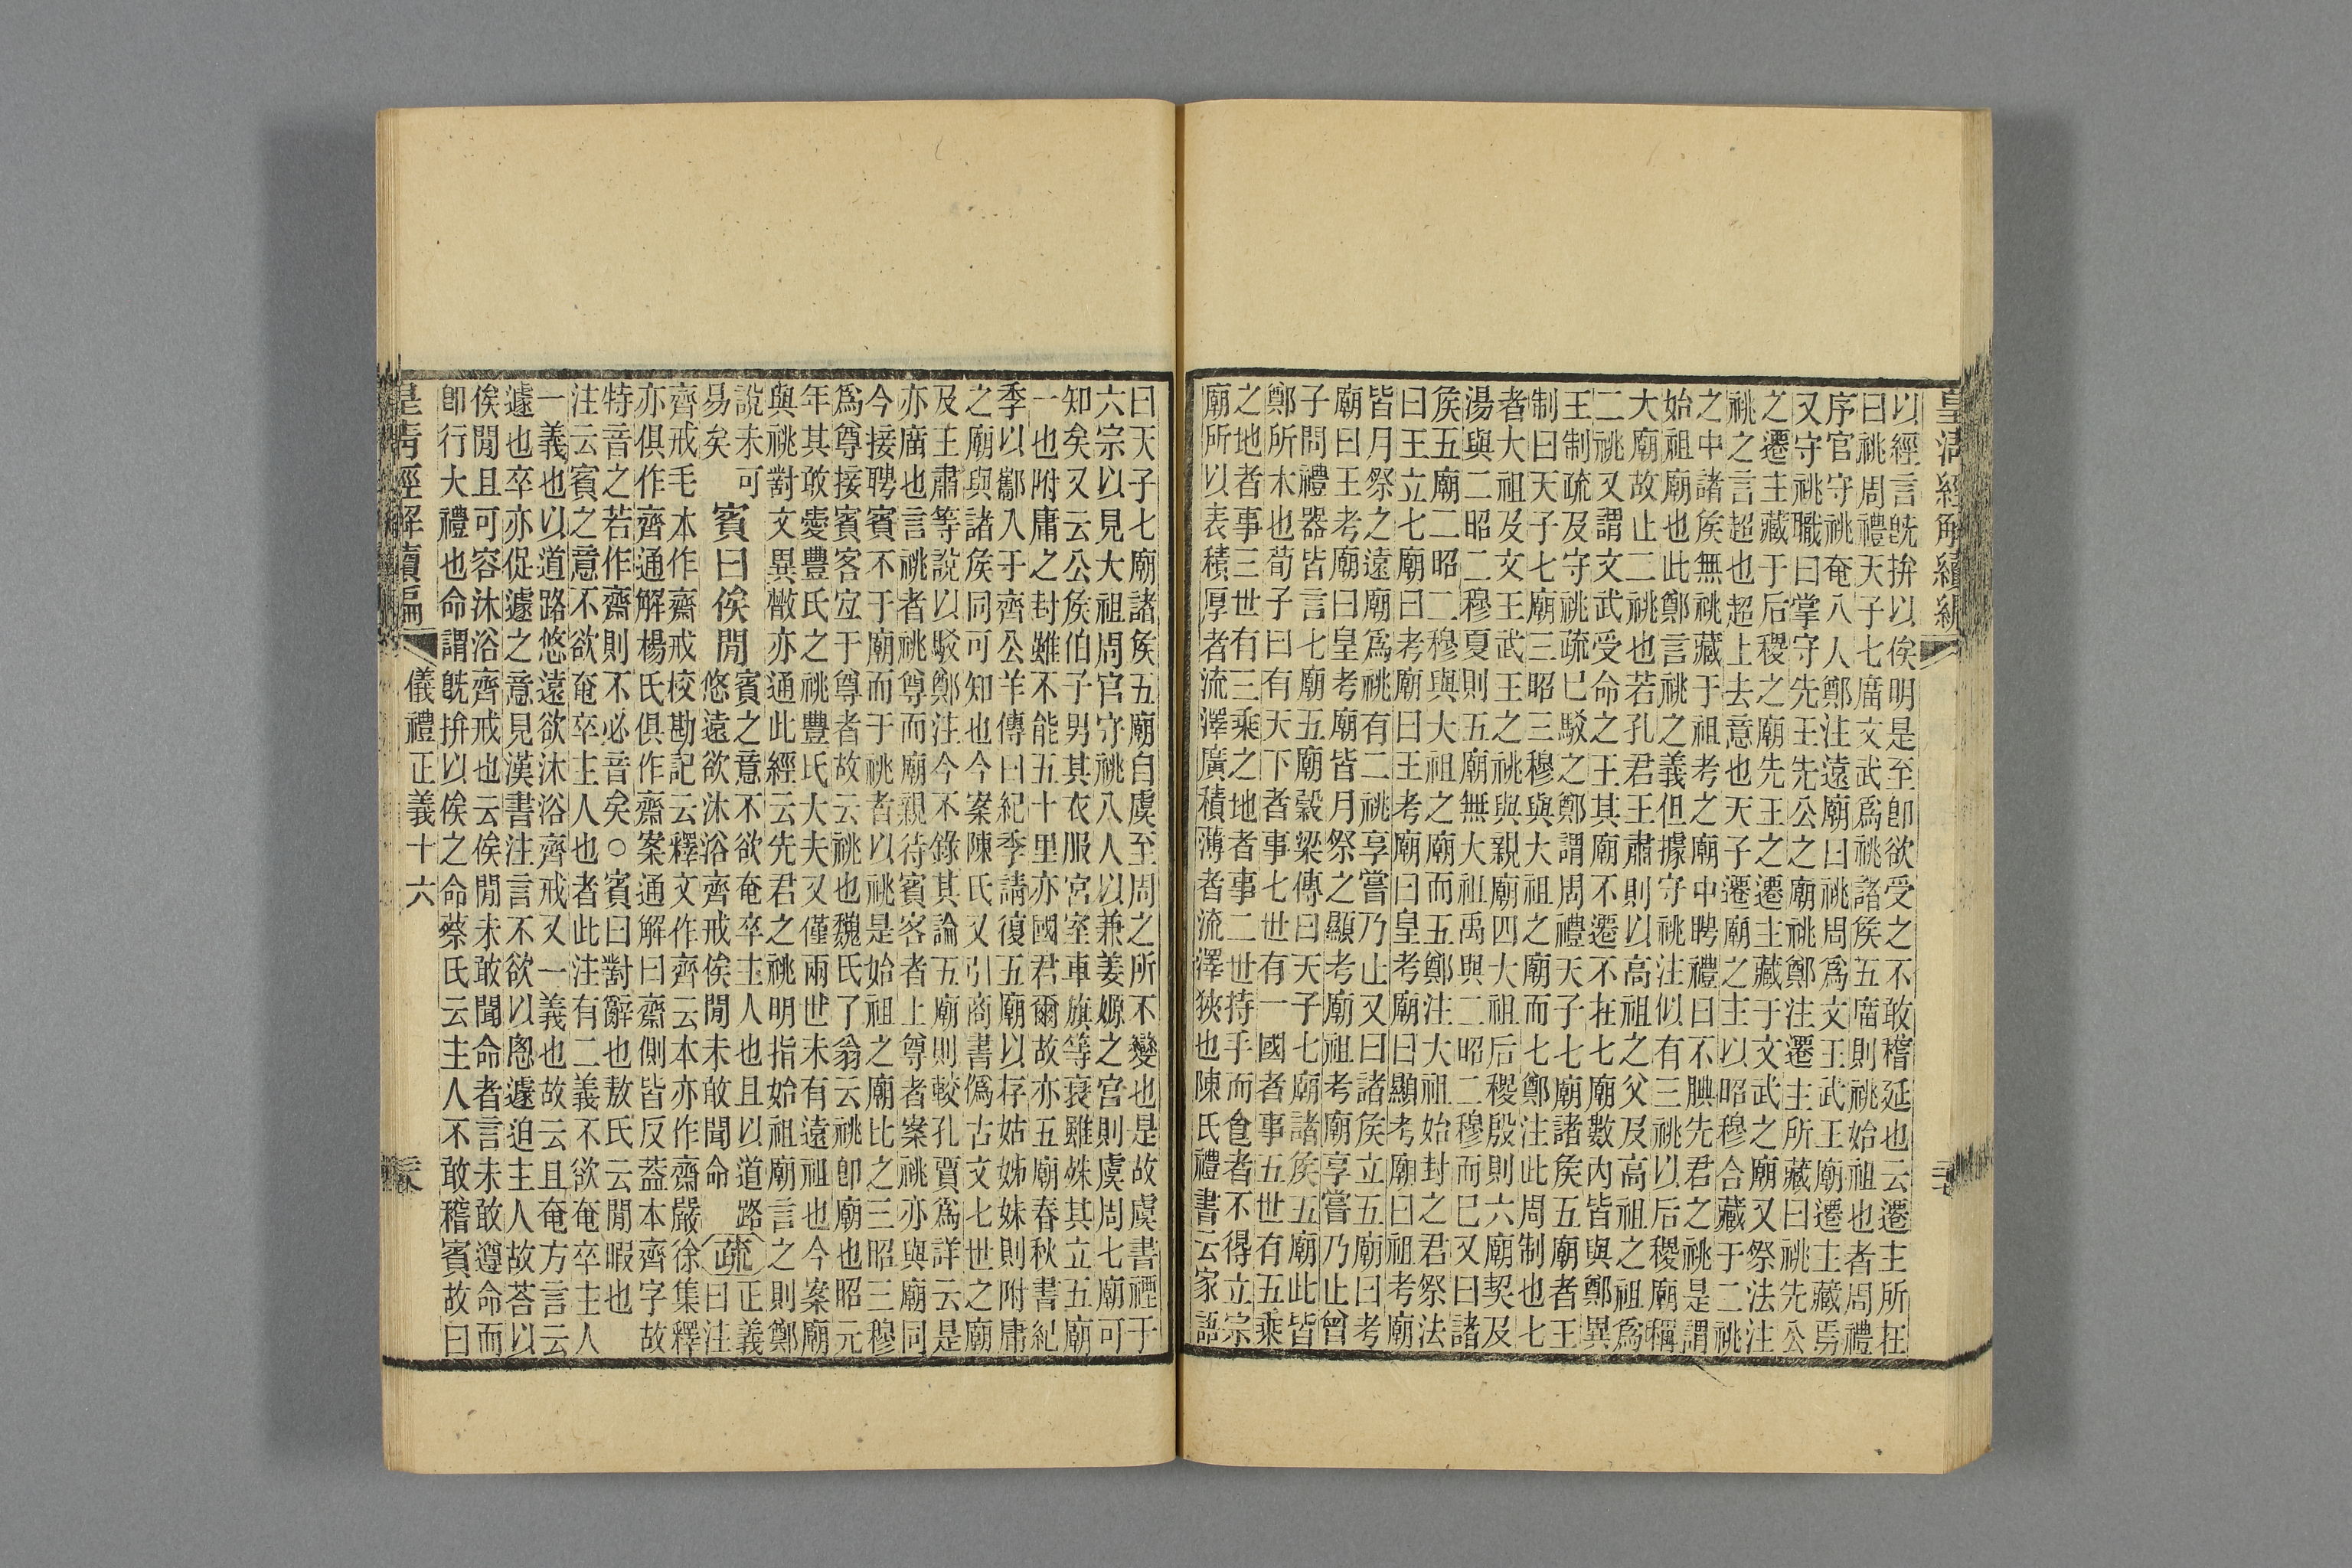 皇清經解續編
以經言旣拚以俟明是至卽欲受之不敢稽延也云遷主所在
曰祧周禮天子七廟文武爲祧諸侯五廟則祧始祖也者周禮
序官守祧奄八人鄭注遠廟曰祧周爲文王武王廟遷主藏焉
又守祧職曰掌守先王先公之廟祧鄭注遷主所藏曰祧先公
之遷主藏于后稷之廟先王之遷主藏于文武之廟又祭法注
祧之言超也超上去意也天子遷廟之主以昭穆合藏于二祧
之中諸侯無祧藏于祖考之廟中聘禮曰不腆先君之祧是謂
始祖廟也此鄭言祧之義但據守祧注似有三祧以后稷廟稱
大廟故止二祧也若孔君王肅則以高祖之父及高祖之祖爲
二祧又謂文武受命之王其廟不遷不在七廟數內皆與鄭異
王制疏及守祧疏已駁之鄭謂周禮天子七廟諸侯五廟者王
制曰天子七廟三昭三穆與大祖之廟而七鄭注此周制也七
者大祖及文王武王之祧與親廟四大祖后稷殷則六廟契及
湯與二昭二穆夏則五廟無大祖禹與二昭二穆而已又曰諸
侯五廟二昭二穆與大祖之廟而五鄭注大祖始封之君祭法
曰王立七廟曰考廟曰王考廟曰皇考廟曰顯考廟曰祖考廟
皆月祭之遠廟爲祧有二祧享嘗乃止又曰諸侯立五廟曰考
廟曰王考廟曰皇考廟皆月祭之顯考廟祖考廟享嘗乃止曾
子問禮器皆言七廟五廟穀梁傳曰天子七廟諸侯五廟此皆
鄭所本也荀子曰有天下者事七世有一國者事五世有五乘
之地者事三世有三乘之地者事二世持手而食者不得立宗
廟所以表積厚者流澤廣積薄者流澤狹也陳氏禮書云家語
曰天子七廟諸侯五廟自虞至周之所不變也是故虞書禋于
六宗以見大祖周官守祧八人以兼姜嫄之宮則虞周七廟可
知矣又云公侯伯子男其衣服宮室車旗等衰雖殊其立五廟
一也附庸之封雖不能五十里亦國君爾故亦五廟春秋書紀
季以酅入于齊公羊傳曰紀季請復五廟以存姑姊妹則附庸
之廟與諸侯同可知也今案陳氏又引商書僞古文七世之廟
及王肅等說以駁鄭注今不錄其論五廟則較孔賈爲詳云是
亦廣也言祧者祧尊而廟親待賓客者上尊者案祧亦與廟同
今接聘賓不于廟而于祧者以祧是始祖之廟比之三昭三穆
爲尊接賓客宜于尊者故云祧也魏氏了翁云祧卽廟也昭元
年其敢愛豐氏之祧豐氏大夫又僅兩世未有遠祖也今案廟
與祧對文異散亦通此經云先君之祧明指始祖廟言之則鄭
說未可
易矣
賓曰俟閒
賓之意不欲奄卒主人也且以道路
悠遠欲沐浴齊戒俟閒未敢聞命
疏
正義
曰注
齊戒毛本作齋戒校勘記云釋文作齊云本亦作齋嚴徐集釋
亦俱作齊通解楊氏俱作齋案通解曰齋側皆反葢本齊字故
特音之若作齋則不必音矣○賓曰對辭也敖氏云閒暇也
注云賓之意不欲奄卒主人也者此注有二義不欲奄卒主人
一義也以道路悠遠欲沐浴齊戒又一義也故云且奄方言云
遽也卒亦促遽之意見漢書注言不欲以悤遽迫主人故荅以
俟閒且可容沐浴齊戒也云俟閒未敢聞命者言未敢遵命而
卽行大禮也命謂旣拚以俟之命蔡氏云主人不敢稽賓故曰
皇清經解續編
儀禮正義十六